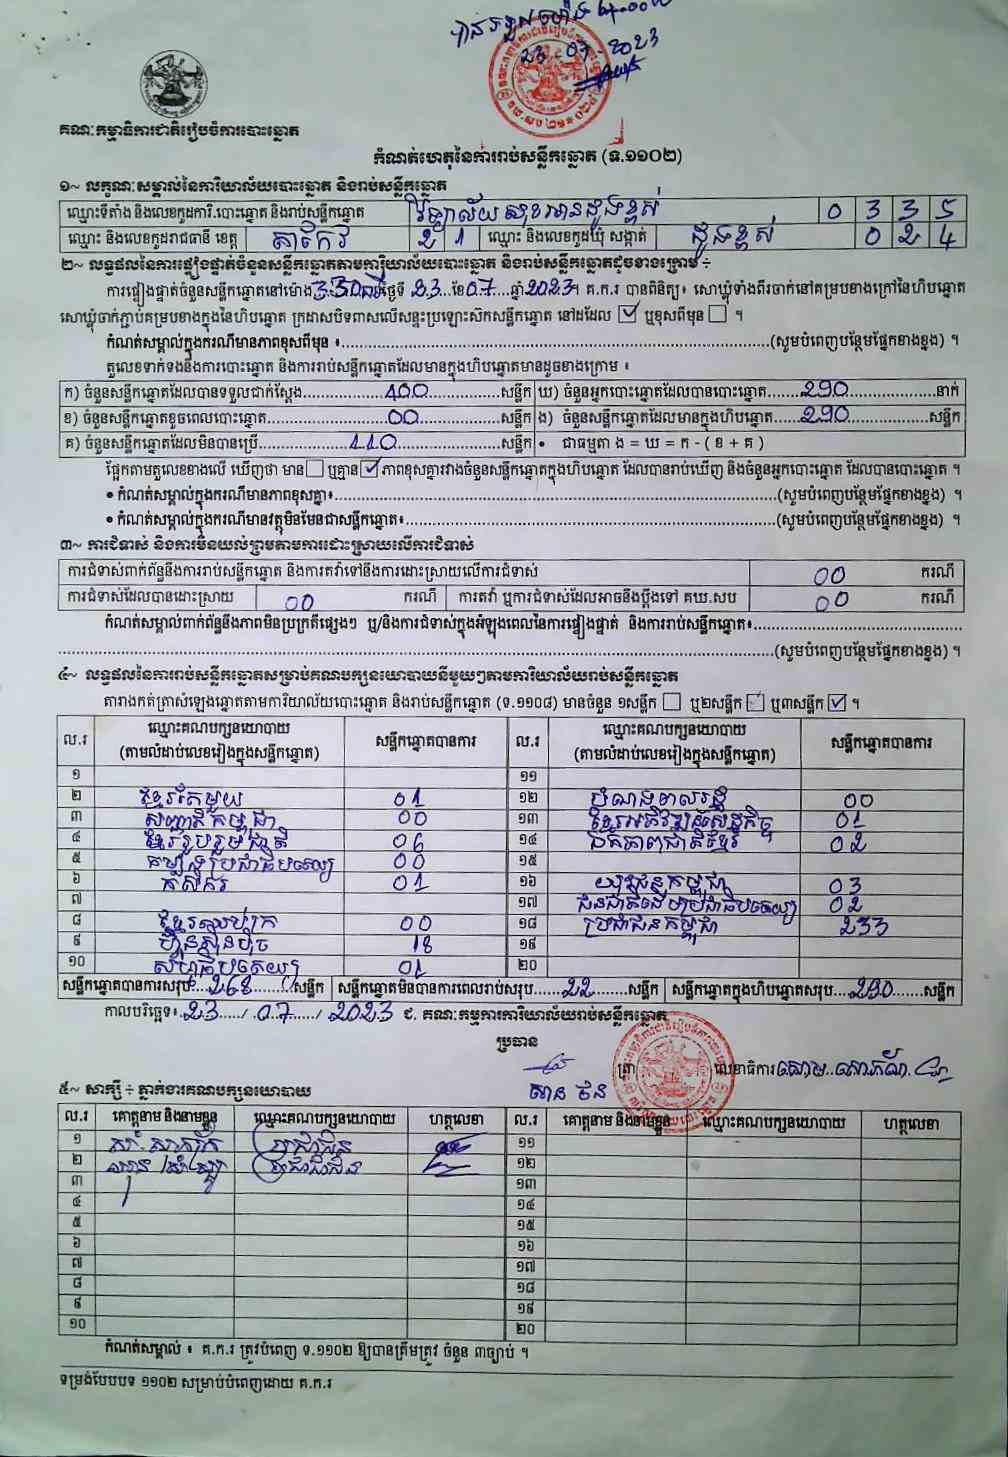 23-07-2023
គណៈកម្មាធិការជាតិរៀបចំការបោះឆ្នោត
កំណត់ហេតុនៃការរាប់សន្លឹកឆ្នោត (ទ.១១០២)
១~ លក្ខណៈសម្គាល់នៃការិយាល័យបោះឆ្នោត និងរាប់សន្លឹកឆ្នោត
ឈ្មោះទីតាំង និងលេខកូដការិ.បោះឆ្នោត និងរាប់សន្លឹកឆ្នោត វិទ្យាល័យ សុខអានដូងខ្ពស់ 0 3 3 5
ឈ្មោះ និងលេខកូដរាជធានី ខេត្ត តាកែវ 2 1 ឈ្មោះ និងលេខកូដឃុំ សង្កាត់ ដូងខ្ពស់ 0 2 4
២~ លទ្ធផលនៃការផ្ទៀងផ្ទាត់ចំនួនសន្លឹកឆ្នោតតាមការិយាល័យបោះឆ្នោត និងរាប់សន្លឹកឆ្នោតដូចខាងក្រោម ÷
ការផ្ទៀងផ្ទាត់ចំនួនសន្លឹកឆ្នោតនៅម៉ោង 3:30 នាទី ថ្ងៃទី 23 ខែ 07 ឆ្នាំ 2023។ គ.ក.រ បានពិនិត្យ៖ សោឃ្លុំទាំងពីរចាក់នៅគម្របខាងក្រៅនៃហិបឆ្នោត
សោឃ្លុំចាក់ភ្ជាប់គម្របខាងក្នុងនៃហិបឆ្នោត ក្រដាសបិទពាសលើសន្ទះប្រឡោះសិកសន្លឹកឆ្នោត នៅដដែល ☑ ឬខុសពីមុន ☐ ។
កំណត់សម្គាល់ក្នុងករណីមានភាពខុសពីមុន ៖.....(សូមបំពេញបន្ថែមផ្នែកខាងខ្នង) ។
តួលេខទាក់ទងនឹងការបោះឆ្នោត និងការរាប់សន្លឹកឆ្នោតដែលមានក្នុងហិបឆ្នោតមានដូចខាងក្រោម ៖
ក) ចំនួនសន្លឹកឆ្នោតដែលបានទទួលជាក់ស្តែង.....400.....សន្លឹក ឃ) ចំនួនអ្នកបោះឆ្នោតដែលបានបោះឆ្នោត.....290.....នាក់
ខ) ចំនួនសន្លឹកឆ្នោតខូចពេលបោះឆ្នោត.....00.....សន្លឹក ង) ចំនួនសន្លឹកឆ្នោតដែលមានក្នុងហិបឆ្នោត.....290.....សន្លឹក
គ) ចំនួនសន្លឹកឆ្នោតដែលមិនបានប្រើ.....110.....សន្លឹក • ជាធម្មតា ង = ឃ = ក - ( ខ + គ )
ផ្អែកតាមតួលេខខាងលើ ឃើញថា មាន ☐ ឬគ្មាន ☑ ភាពខុសគ្នារវាងចំនួនសន្លឹកឆ្នោតក្នុងហិបឆ្នោត ដែលបានរាប់ឃើញ និងចំនួនអ្នកបោះឆ្នោត ដែលបានបោះឆ្នោត ។
• កំណត់សម្គាល់ក្នុងករណីមានភាពខុសគ្នា៖.....(សូមបំពេញបន្ថែមផ្នែកខាងខ្នង) ។
• កំណត់សម្គាល់ក្នុងករណីមានវត្ថុមិនមែនជាសន្លឹកឆ្នោត៖.....(សូមបំពេញបន្ថែមផ្នែកខាងខ្នង) ។
៣~ ការជំទាស់ និងការមិនយល់ព្រមតាមការដោះស្រាយលើការជំទាស់
ការជំទាស់ពាក់ព័ន្ធនឹងការរាប់សន្លឹកឆ្នោត និងការតវ៉ាទៅនឹងការដោះស្រាយលើការជំទាស់ 00 ករណី
ការជំទាស់ដែលបានដោះស្រាយ 00 ករណី ការតវ៉ា ឬការជំទាស់ដែលអាចនឹងប្តឹងទៅ គឃ.សប 00 ករណី
កំណត់សម្គាល់ពាក់ព័ន្ធនឹងភាពមិនប្រក្រតីផ្សេងៗ ឬ/និងការជំទាស់ក្នុងអំឡុងពេលនៃការផ្ទៀងផ្ទាត់ និងការរាប់សន្លឹកឆ្នោត៖.....
.....(សូមបំពេញបន្ថែមផ្នែកខាងខ្នង) ។
៤~ លទ្ធផលនៃការរាប់សន្លឹកឆ្នោតសម្រាប់គណបក្សនយោបាយនីមួយៗតាមការិយាល័យរាប់សន្លឹកឆ្នោត
តារាងកត់ត្រាសំឡេងឆ្នោតតាមការិយាល័យបោះឆ្នោត និងរាប់សន្លឹកឆ្នោត (ទ.១១០៨) មានចំនួន ១សន្លឹក ☐ ឬ២សន្លឹក ☐ ឬ៣សន្លឹក ☑ ។
ល.រ ឈ្មោះគណបក្សនយោបាយ (តាមលំដាប់លេខរៀងក្នុងសន្លឹកឆ្នោត) សន្លឹកឆ្នោតបានការ ល.រ ឈ្មោះគណបក្សនយោបាយ (តាមលំដាប់លេខរៀងក្នុងសន្លឹកឆ្នោត) សន្លឹកឆ្នោតបានការ
១ ១១
២ ខ្មែរតែមួយ 01 ១២ បំណងពលរដ្ឋ 00
៣ សញ្ជាតិកម្ពុជា 00 ១៣ ខ្មែរអភិវឌ្ឍន៍សេដ្ឋកិច្ច 01
៤ ខ្មែររួបរួមជាតិ 06 ១៤ ឯកភាពជាតិខ្មែរ 02
៥ កម្ពុជាប្រជាធិបតេយ្យ 00 ១៥
៦ កសិករ 01 ១៦ យុវជនកម្ពុជា 03
៧ ១៧ ជនជាតិដើមប្រជាធិបតេយ្យ 02
៨ ខ្មែរឈប់ក្រ 00 ១៨ ប្រជាជនកម្ពុជា 233
៩ ហ៊្វុនស៊ិនប៉ិច 18 ១៩
១០ សំបុក្កធិបតេយ្យ 01 ២០
សន្លឹកឆ្នោតបានការសរុប.....268.....សន្លឹក សន្លឹកឆ្នោតមិនបានការពេលរាប់សរុប.....22.....សន្លឹក សន្លឹកឆ្នោតក្នុងហិបឆ្នោតសរុប.....290.....សន្លឹក
កាលបរិច្ឆេទ៖ 23 / 07 / 2023 ជ. គណៈកម្មការការិយាល័យរាប់សន្លឹកឆ្នោត
ប្រធាន
ត្រា លេខាធិការ
៥~ សាក្សី ÷ ភ្នាក់ងារគណបក្សនយោបាយ
ល.រ គោត្តនាម និងនាមខ្លួន ឈ្មោះគណបក្សនយោបាយ ហត្ថលេខា ល.រ គោត្តនាម និងនាមខ្លួន ឈ្មោះគណបក្សនយោបាយ ហត្ថលេខា
១ ១១
២ ១២
៣ ១៣
៤ ១៤
៥ ១៥
៦ ១៦
៧ ១៧
៨ ១៨
៩ ១៩
១០ ២០
កំណត់សម្គាល់ ៖ គ.ក.រ ត្រូវបំពេញ ទ.១១០២ ឱ្យបានត្រឹមត្រូវ ចំនួន ៣ច្បាប់ ។
ទម្រង់បែបបទ ១១០២ សម្រាប់បំពេញដោយ គ.ក.រ